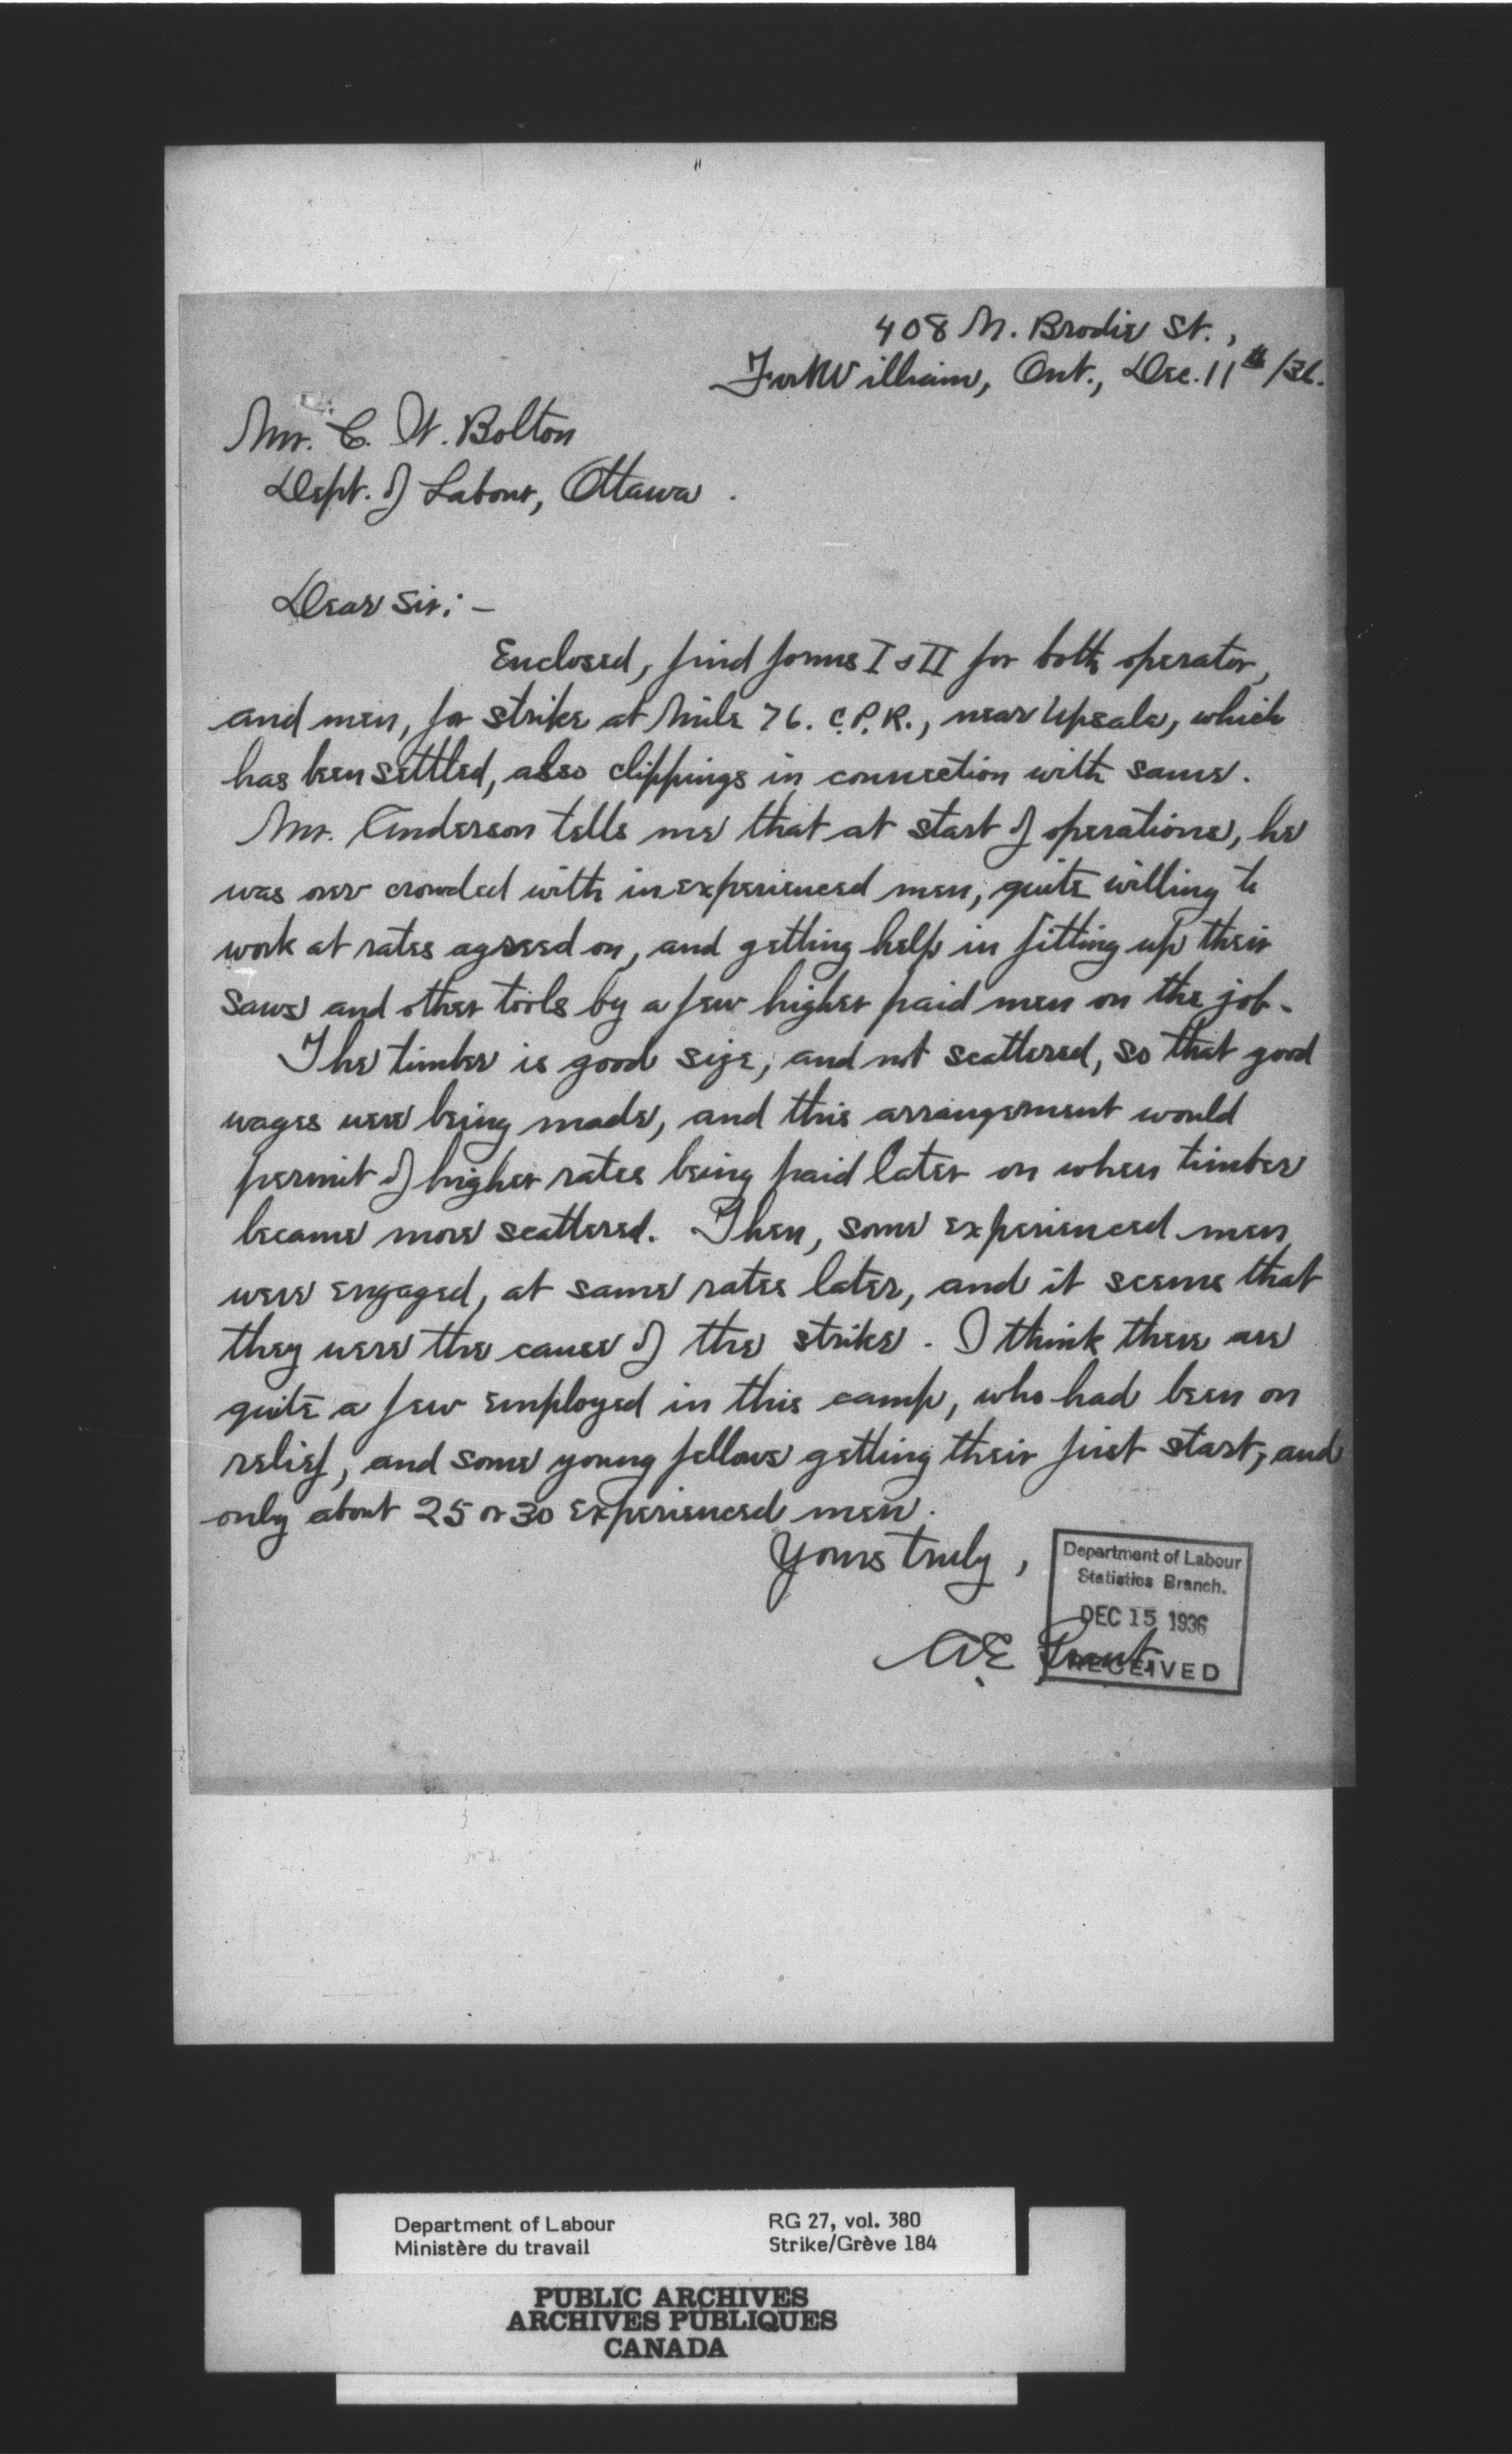 408 N. Brodie St.,
Fort William, Ont., Dec. 11th /36.
Mr. C. W. Bolton
Dept. of Labour, Ottawa.
Dear Sir:-
Enclosed, find forms I & II for both operator,
and men, for strike at Mile 76. C.P.R., near Upsala, which
has been settled, also clippings in connection with same.
Mr. Anderson tells me that at start of operations, he
was over crowded with inexperienced men, quite willing to
work at rates agreed on, and getting help in fitting up their
saws and other tools by a few higher paid men on the job.
The timber is good size, and not scattered, so that good
wages were being made, and this arrangement would
permit of higher rates being paid later on when timber
became more scattered. Then, some experienced men
were engaged, at same rates later, and it seems that
they were the cause of the strike. I think there are
quite a few employed in this camp, who had been on
relief, and some young fellows getting their first start, and
only about 25 or 30 experienced men.
Yours truly,
A.E.
Department of Labour
Statistics Branch.
DEC 15 1936
RECEIVED
Department of Labour RG 27, vol. 380
Ministère du travail Strike/Grève 184
PUBLIC ARCHIVES
ARCHIVES PUBLIQUES
CANADA